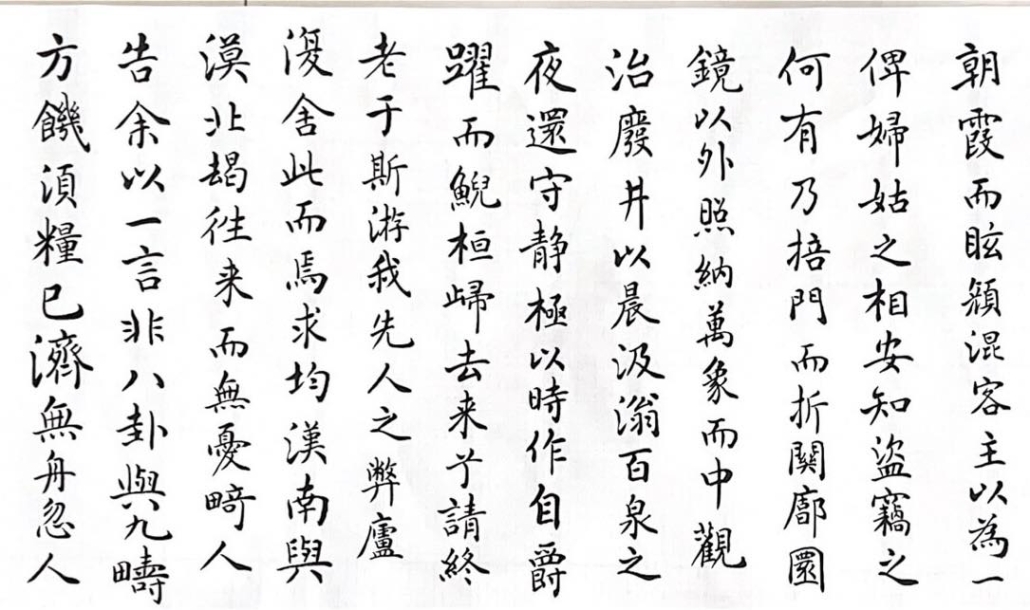 朝霞而眩顔混客主以為一
俾婦姑之相安知盜竊之
何有乃掊門而折關廓圜
鏡以外照納萬象而中觀
治廢井以晨汲滃百泉之
夜還守静極以時作自爵
躍而鯢桓歸去来兮請終
老于斯游我先人之弊廬
復舍此而焉求均漢南與
漠北朅往来而無憂畸人
告余以一言非八卦與九疇
方饑須糧已濟無舟忽人